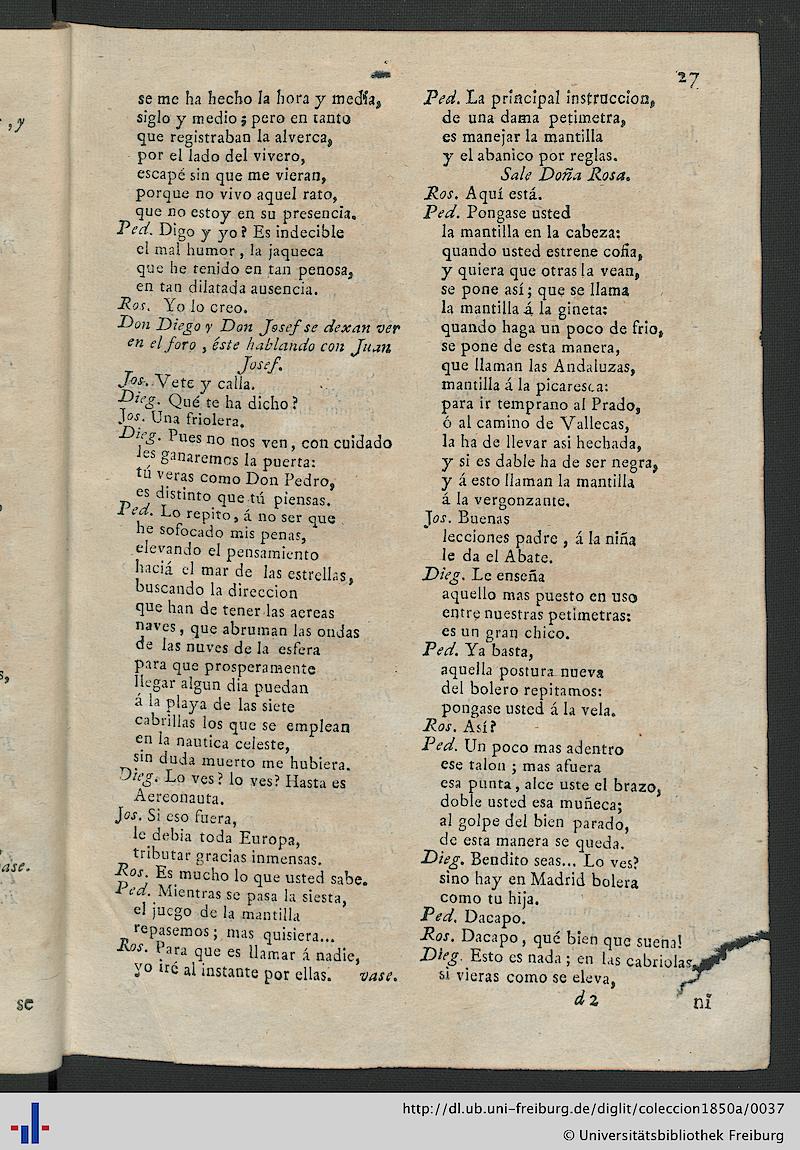 27
se me ha hecho la hora y media,
siglo y medio; pero en tanto
que registraban la alverca,
por el lado del vivero,
escapé sin que me vieran,
porque no vivo aquel rato,
que no estoy en su presencia.
Ped. Digo y yo? Es indecible
el mal humor, la jaqueca
que he tenido en tan penosa,
en tan dilatada ausencia.
Ros. Yo lo creo.
Don Diego y Don Josef se dexan ver
en el foro, éste hablando con Juan
Josef.
Jos. Vete y calla.
Dieg. Qué te ha dicho?
Jos. Una friolera.
Dieg. Pues no nos ven, con cuidado
les ganaremos la puerta:
tú veras como Don Pedro,
es distinto que tú piensas.
Ped. Lo repito, á no ser que
he sofocado mis penas,
elevando el pensamiento
haciá el mar de las estrellas,
buscando la direccion
que han de tener las aereas
naves, que abruman las ondas
de las nuves de la esfera
para que prosperamente
llegar algun dia puedan
á la playa de las siete
cabrillas los que se emplean
en la nautica celeste,
sin duda muerto me hubiera.
Dieg. Lo ves? lo ves? Hasta es
Aereonauta.
Jos. Si eso fuera,
le debia toda Europa,
tributar gracias inmensas.
Ros. Es mucho lo que usted sabe.
Ped. Mientras se pasa la siesta,
el juego de la mantilla
repasemos; mas quisiera...
Ros. Para que es llamar á nadie,
yo iré al instante por ellas. vase.
Ped. La principal instruccion,
de una dama petimetra,
es manejar la mantilla
y el abanico por reglas.
Sale Doña Rosa.
Ros. Aquí está.
Ped. Pongase usted
la mantilla en la cabeza:
quando usted estrene cofia,
y quiera que otras la vean,
se pone así; que se llama
la mantilla á la gineta:
quando haga un poco de frio,
se pone de esta manera,
que llaman las Andaluzas,
mantilla á la picaresca:
para ir temprano al Prado,
ó al camino de Vallecas,
la ha de llevar asi hechada,
y si es dable ha de ser negra,
y á esto llaman la mantilla
á la vergonzante.
Jos. Buenas
lecciones padre, á la niña
le da el Abate.
Dieg. Le enseña
aquello mas puesto en uso
entre nuestras petimetras:
es un gran chico.
Ped. Ya basta,
aquella postura nueva
del bolero repitamos:
pongase usted á la vela.
Ros. Así?
Ped. Un poco mas adentro
ese talon; mas afuera
esa punta, alce uste el brazo,
doble usted esa muñeca;
al golpe del bien parado,
de esta manera se queda.
Dieg. Bendito seas... Lo ves?
sino hay en Madrid bolera
como tu hija.
Ped. Dacapo.
Ros. Dacapo, qué bien que suena!
Dieg. Esto es nada; en las cabriolas
si vieras como se eleva,
d 2
ni
, y
s,
ase.
se
http://dl.ub.uni-freiburg.de/diglit/coleccion1850a/0037
© Universitätsbibliothek Freiburg